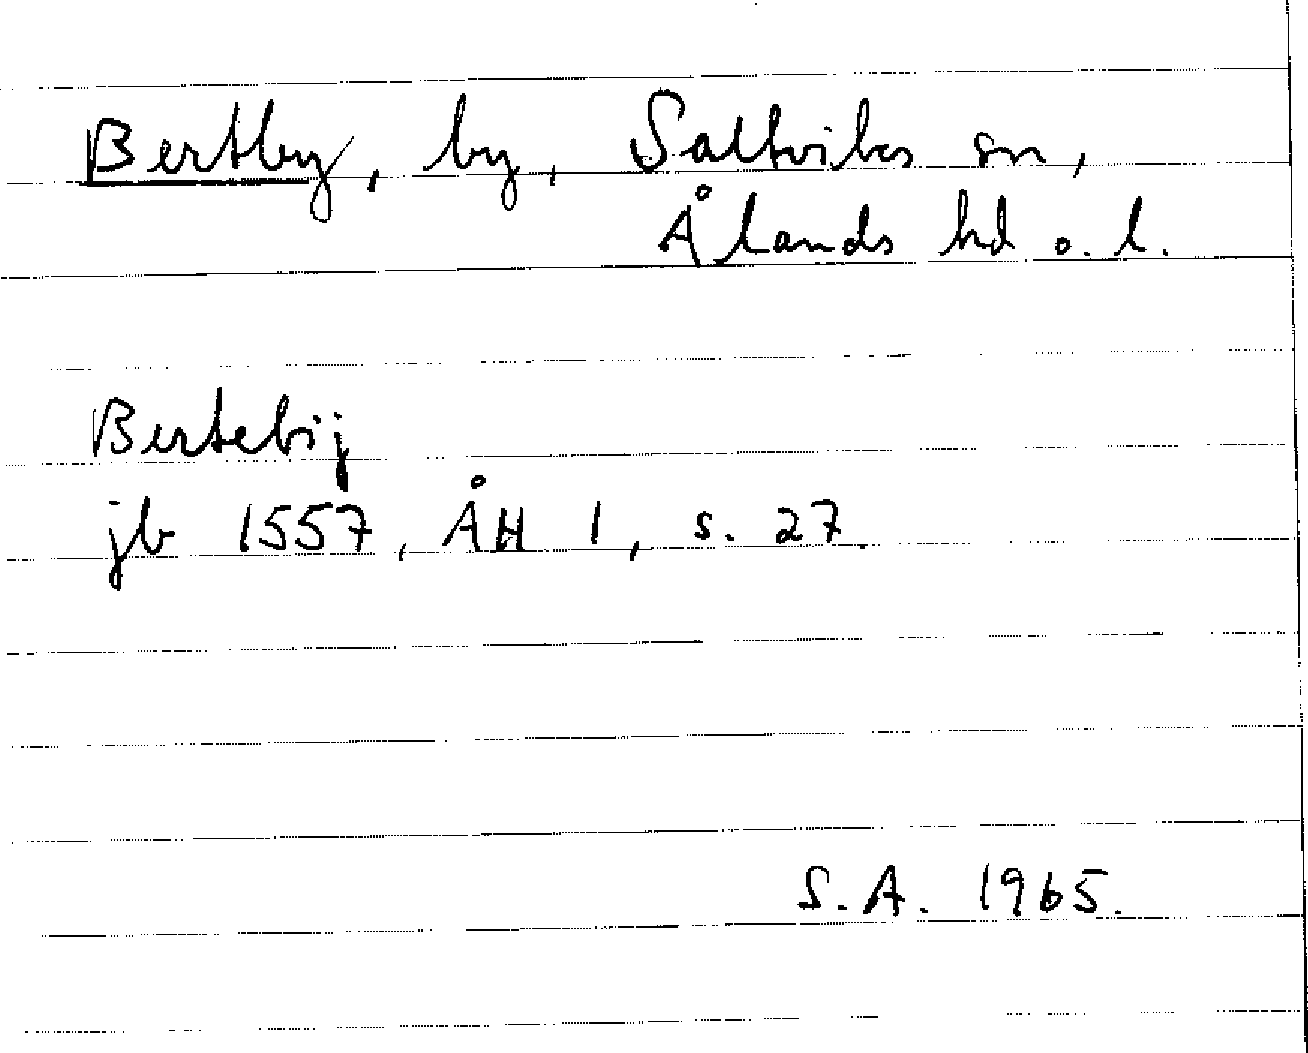 Bertby, by, Saltviks sn,
Ålands hd o. l.
Bertebij
jb 1557, ÅH 1, s. 27.
S.A. 1965.